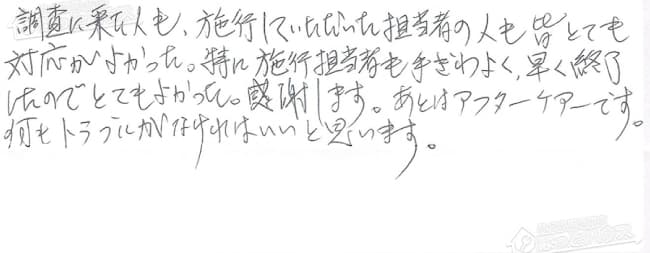 調査に来た人も、施行していただいた担当者の人も皆とても
対応がよかった。特に施行担当者も手ぎわよく、早く終了
したのでとてもよかった。感謝します。あとはアフターケアーです。
何もトラブルがなければいいと思います。